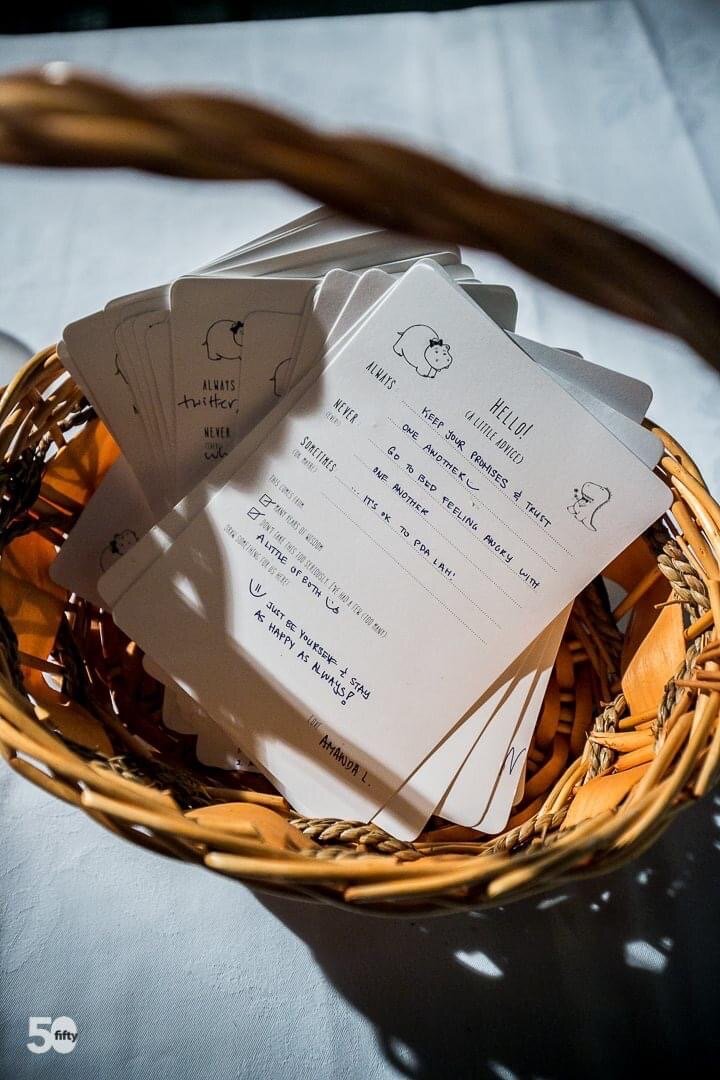 HELLO!
(A LITTLE ADVICE)
ALWAYS
KEEP YOUR PROMISES & TRUST
ONE ANOTHER
NEVER
(EVER!)
GO TO BED FEELING ANGRY WITH
ONE ANOTHER
SOMETIMES
(OR, MAYBE)
... IT'S OK TO PDA LAH!
THIS COMES FROM
MANY YEARS OF WISDOM
DON'T TAKE THIS TOO SERIOUSLY, I'VE HAD A FEW (TOO MANY)
A LITTLE OF BOTH
DRAW SOMETHING FOR US HERE!
JUST BE YOURSELF & STAY
AS HAPPY AS ALWAYS!
LOVE,
AMANDA L.
ALWAYS
twitter,
NEVER
(EVER!)
N
50
fifty